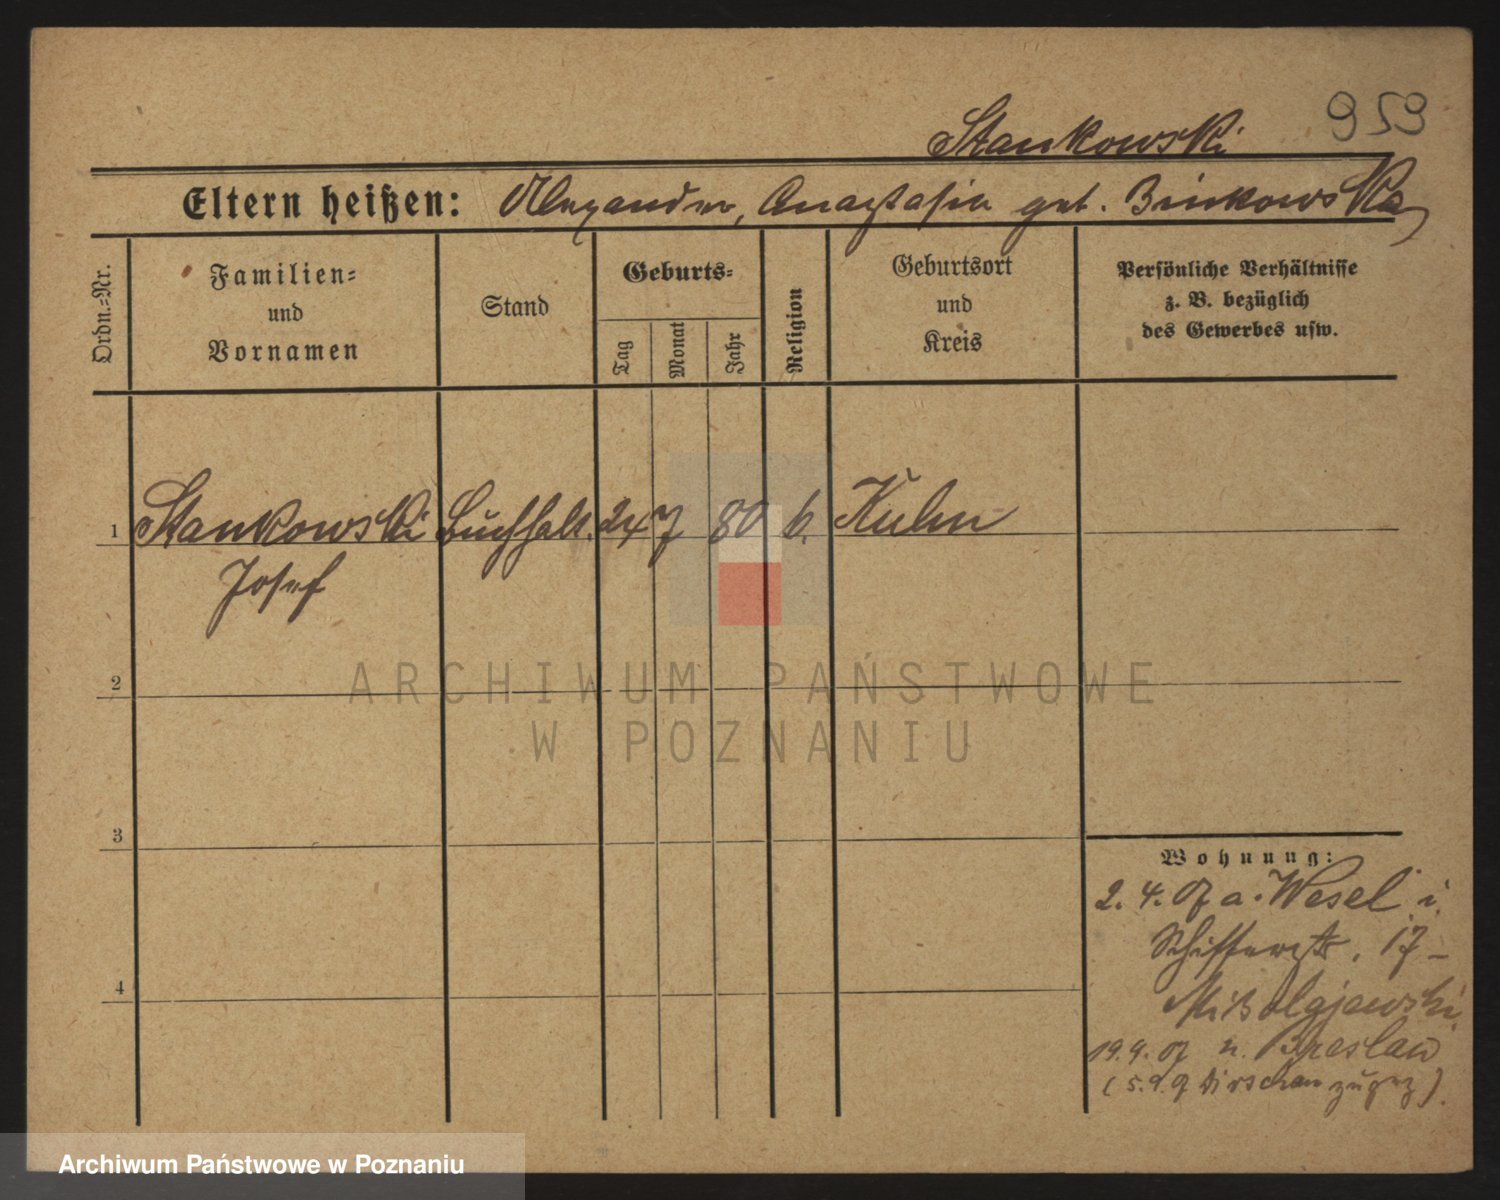 959
Stankowski
Eltern heißen: Alexander, Anastasia geb. Binkowska
Ordn.-Nr.
Familien-
und
Vornamen
Stand
Geburts-
Tag
Monat
Jahr
Religion
Geburtsort
und
Kreis
Persönliche Verhältnisse
z. B. bezüglich
des Gewerbes usw.
1 Stankowski Buchhalt. 24 7 80 k. Kulm
Josef
2
3
4
Wohnung:
2. 4. 07 a. Wesel i.
Schifferstr. 17 -
Mikolajewski
19.9.07 n. Breslau
(5.9.9 Dirschau zugez).
ARCHIWUM PAŃSTWOWE
W POZNANIU
Archiwum Państwowe w Poznaniu